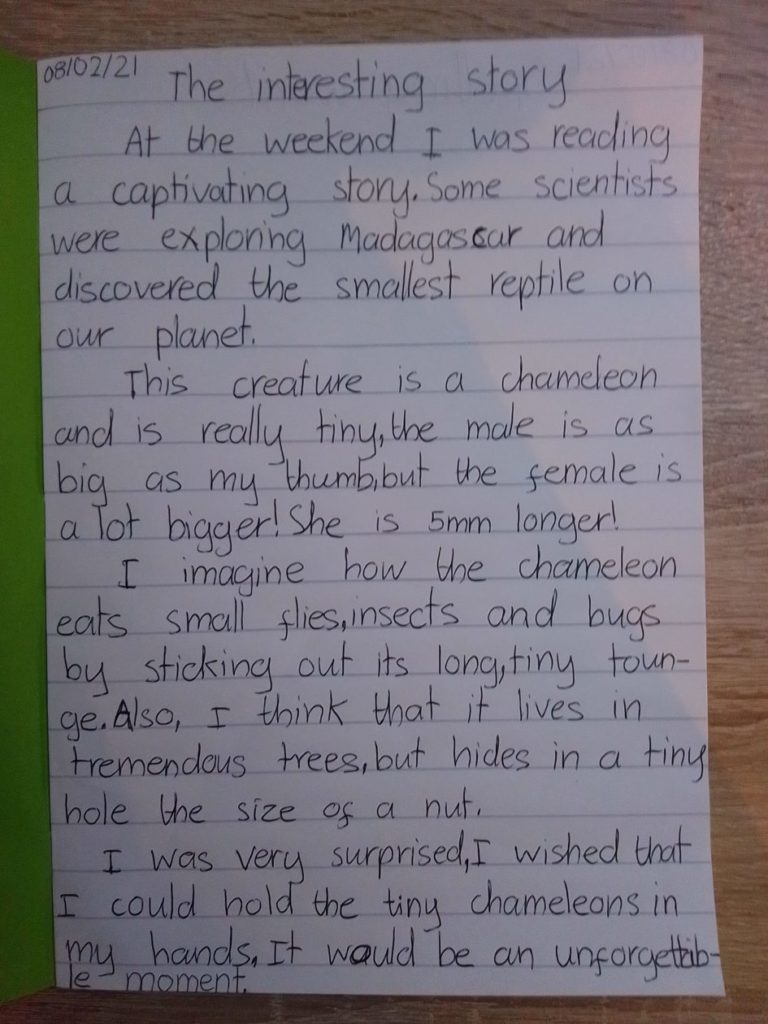 08/02/21
The interesting story
At the weekend I was reading
a captivating story. Some scientists
were exploring Madagascar and
discovered the smallest reptile on
our planet.
This creature is a chameleon
and is really tiny, the male is as
big as my thumb, but the female is
a lot bigger! She is 5mm longer!
I imagine how the chameleon
eats small flies, insects and bugs
by sticking out its long, tiny toun-
ge. Also, I think that it lives in
tremendous trees, but hides in a tiny
hole the size of a nut.
I was very surprised, I wished that
I could hold the tiny chameleons in
my hands. It would be an unforgettab-
le moment.